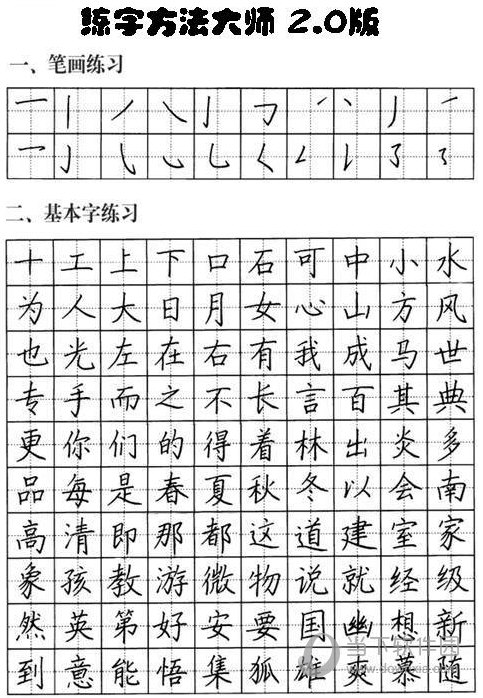 练字方法大师 2.0版
一、笔画练习
二、基本字练习
十工上下口石可中小水
为人大日月女心山方风
也光左在右有我成马世
专手而之不长言百其典
更你们的得着林出炎多
品每是春夏秋冬以会南
高清即那都这道建室家
象孩教游微物说就经级
然英第好安要国幽想新
到意能悟集狐雄爽慕随
当下软件园
www.downxia.com